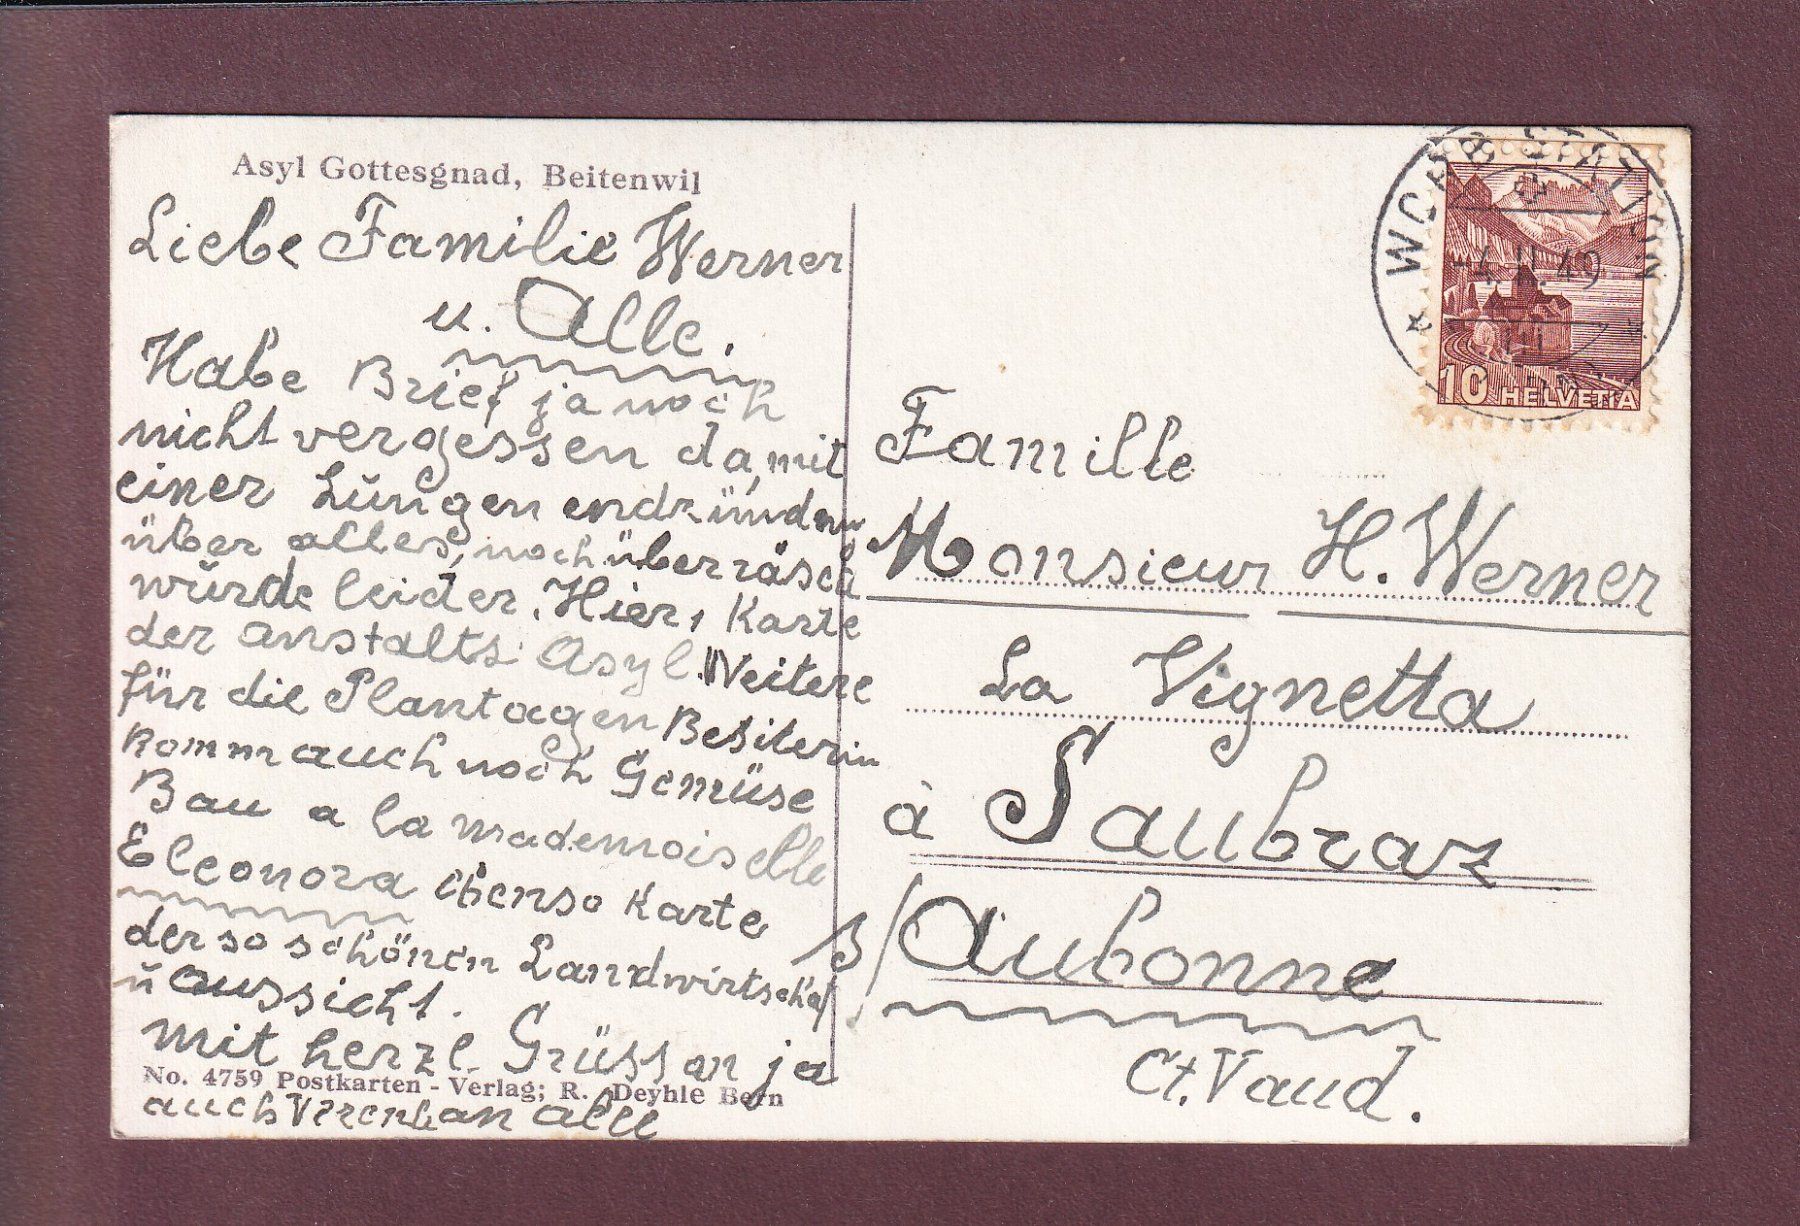 Asyl Gottesgnad, Beitenwil
Liebe Familie Werner
u. Alle.
Habe Brief ja noch
nicht vergessen da, mit
einer Lŭngen endzünden
über alles, noch überräsch
würde leider. Hier, Karte
der anstalts Asyl. Weitere
für die Plantagen Besiterin
komm auch noch Gemüse
Bau a la mademoiselle
Eleonora ebenso Karte
der so schönen Landwirtschaf
ŭ aussicht.
Mit herzl. Grüss an ja
auch Vrenh an alle
No. 4759 Postkarten - Verlag; R. Deyhle Bern
WORB STATION
-4.II.49
10 HELVETIA
Famille
Monsieur H. Werner
La Vignetta
à Saubraz
s/ Aubonne
Ct. Vaud.